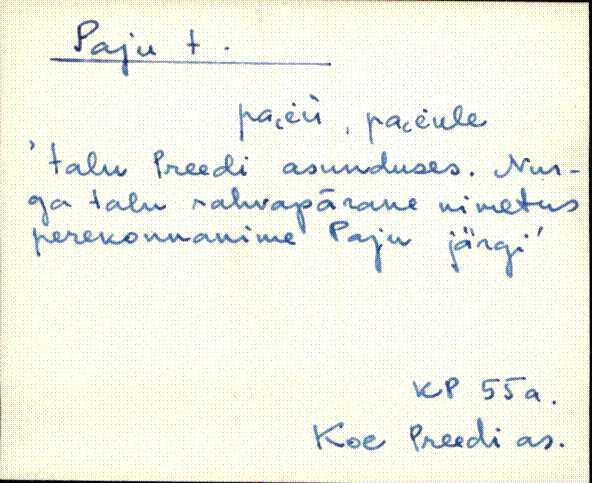 Paju t.
pac̜èu̇, pac̜èule
'talu Preedi asunduses. Nur-
ga talu rahvapärane nimetus
perekonnanime Paju järgi'
KP 55a.
Koe Preedi as.